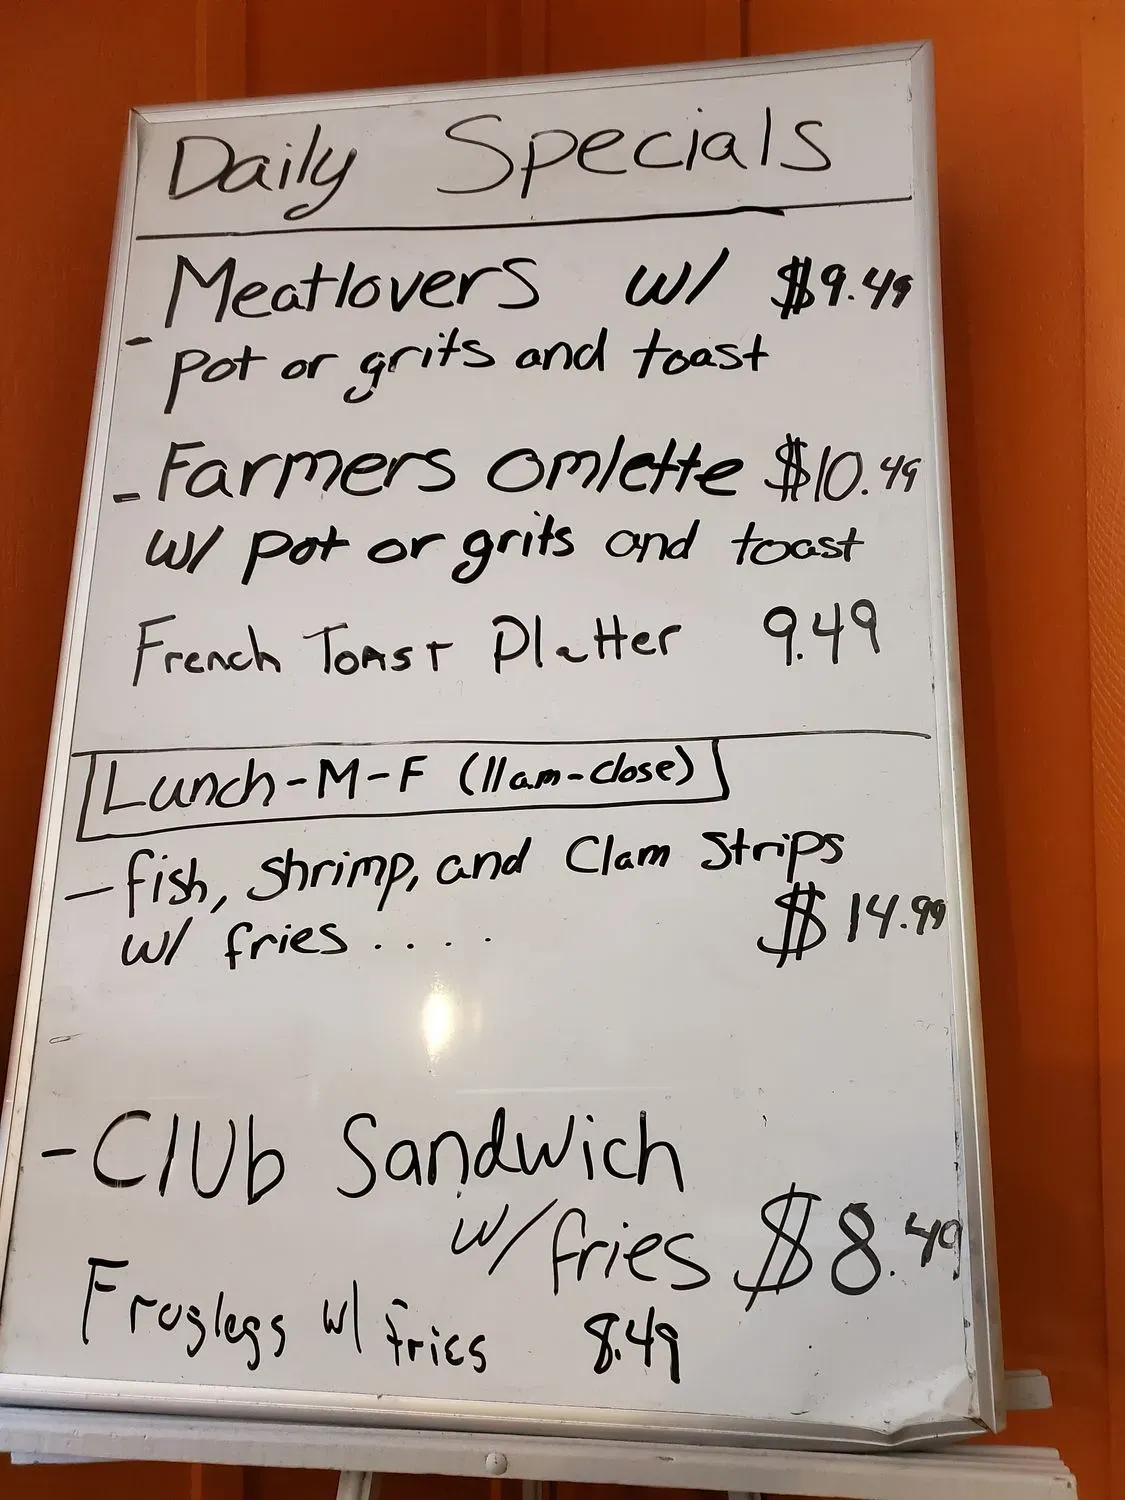 Daily Specials
- Meatlovers w/ $9.49
pot or grits and toast
- Farmers omlette $10.49
w/ pot or grits and toast
French Toast Platter 9.49
Lunch-M-F (11am-close)
- fish, shrimp, and Clam Strips
w/ fries .... $14.99
- Club Sandwich
w/ fries $8.49
Froglegs w/ fries 8.49